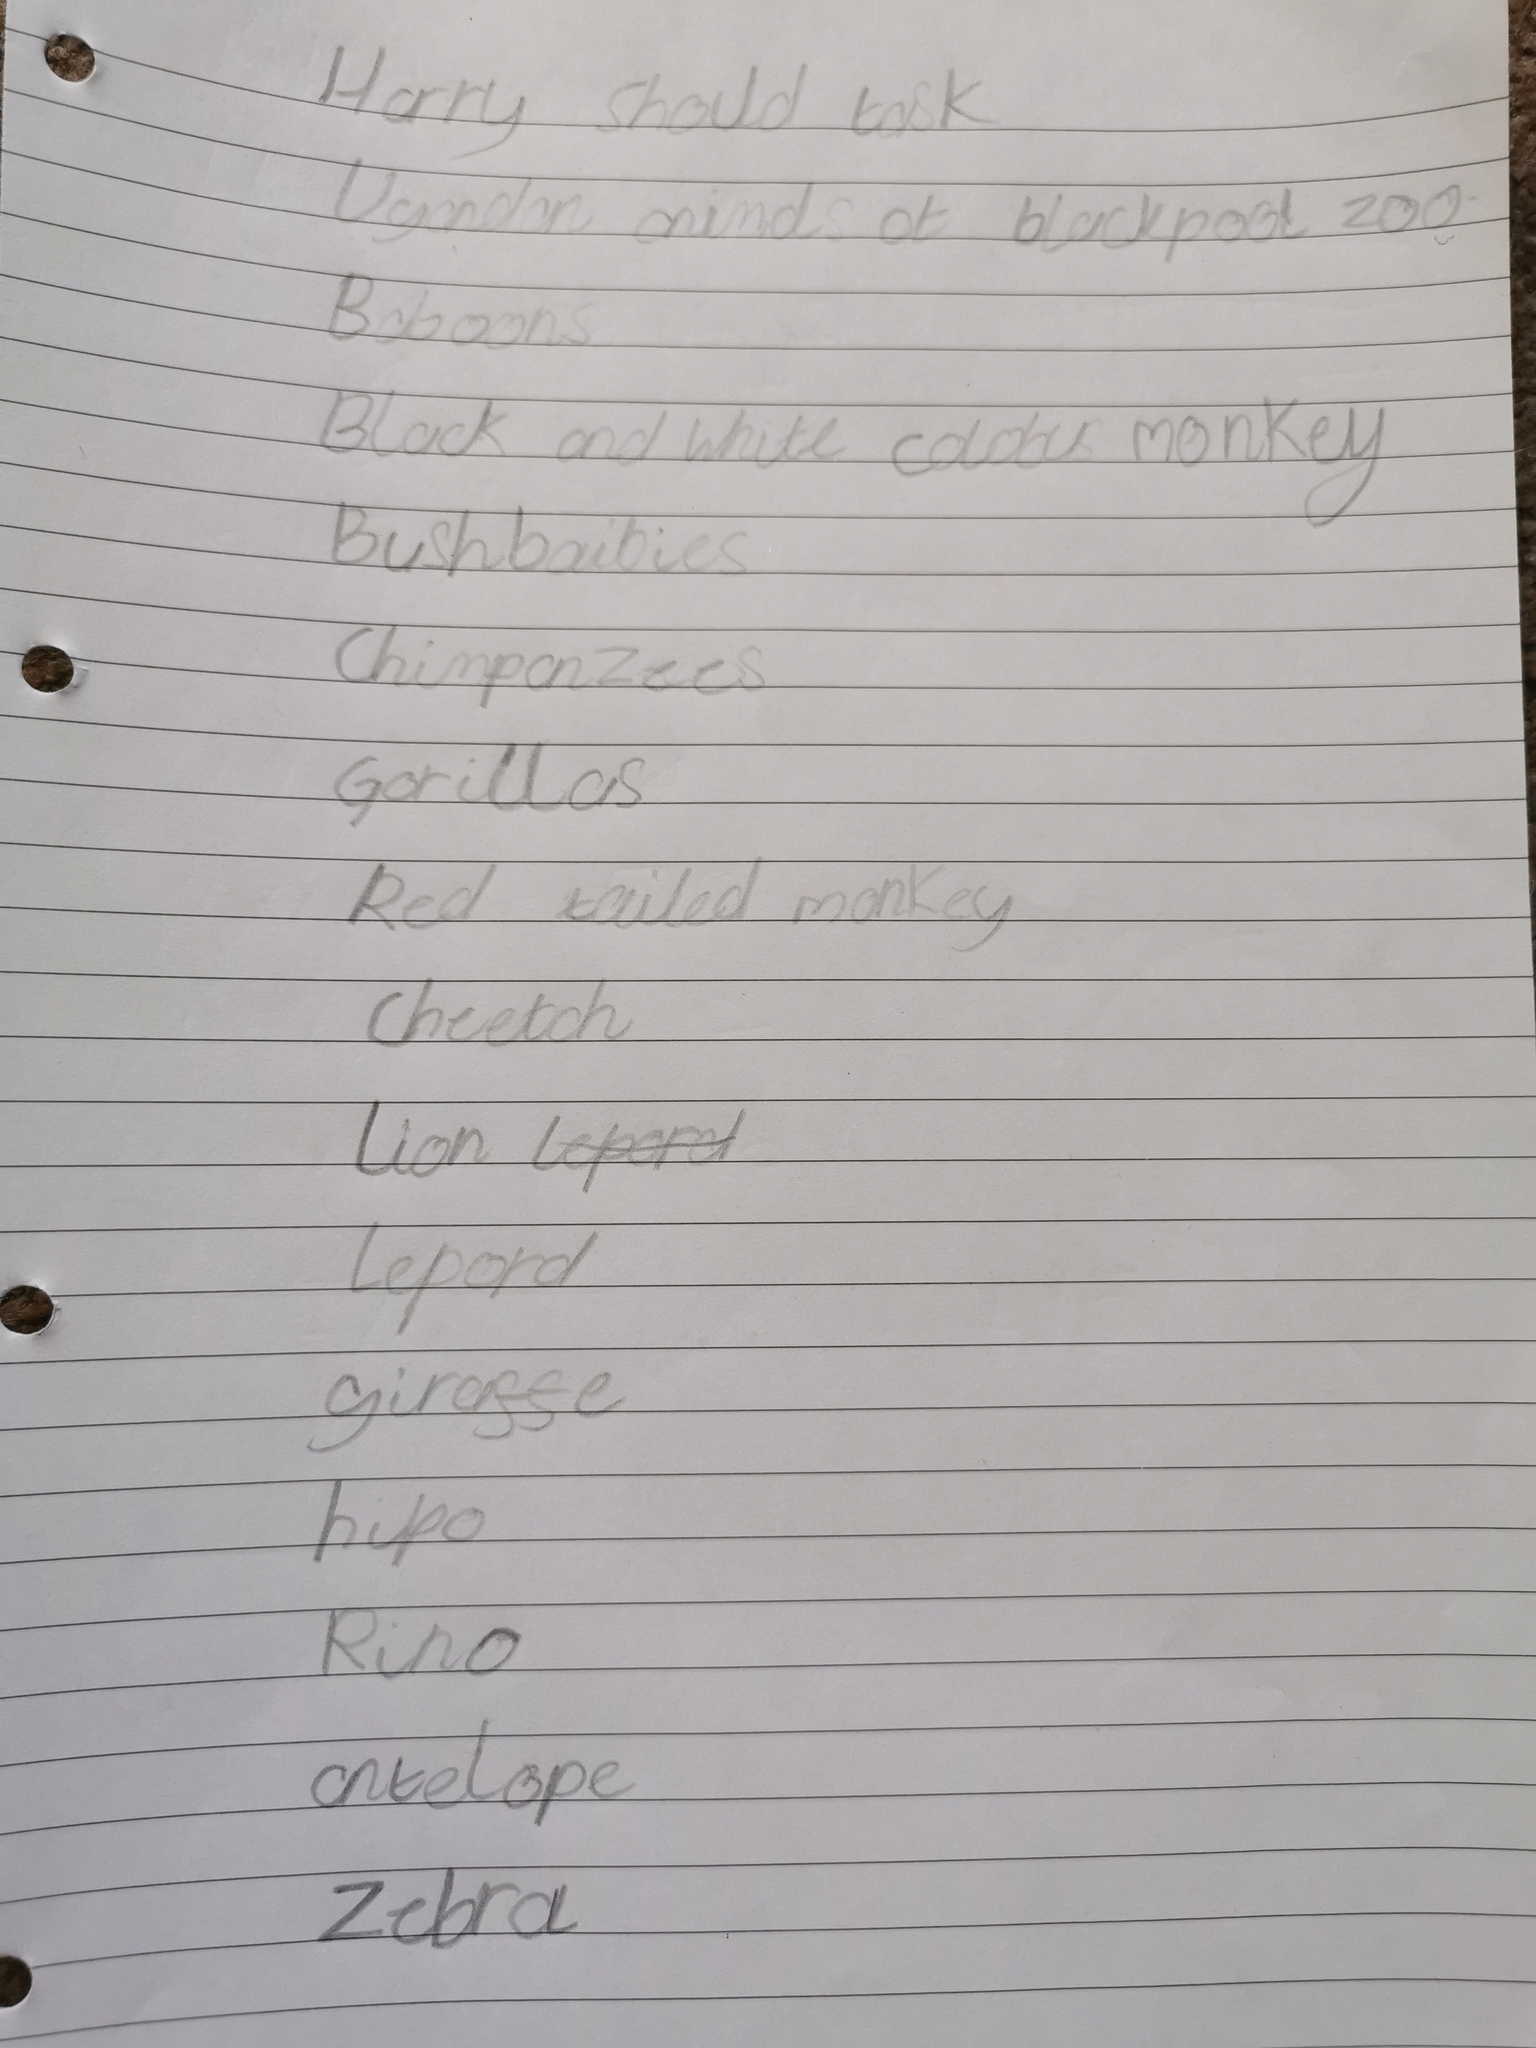 Harry should task
Ugandan animals at blackpool zoo.
Baboons
Black and white colobus monkey
Bushbaibies
Chimpanzees
Gorillas
Red tailed monkey
Cheetah
Lion Lepord
Lepord
giraffe
hipo
Rino
antelope
Zebra